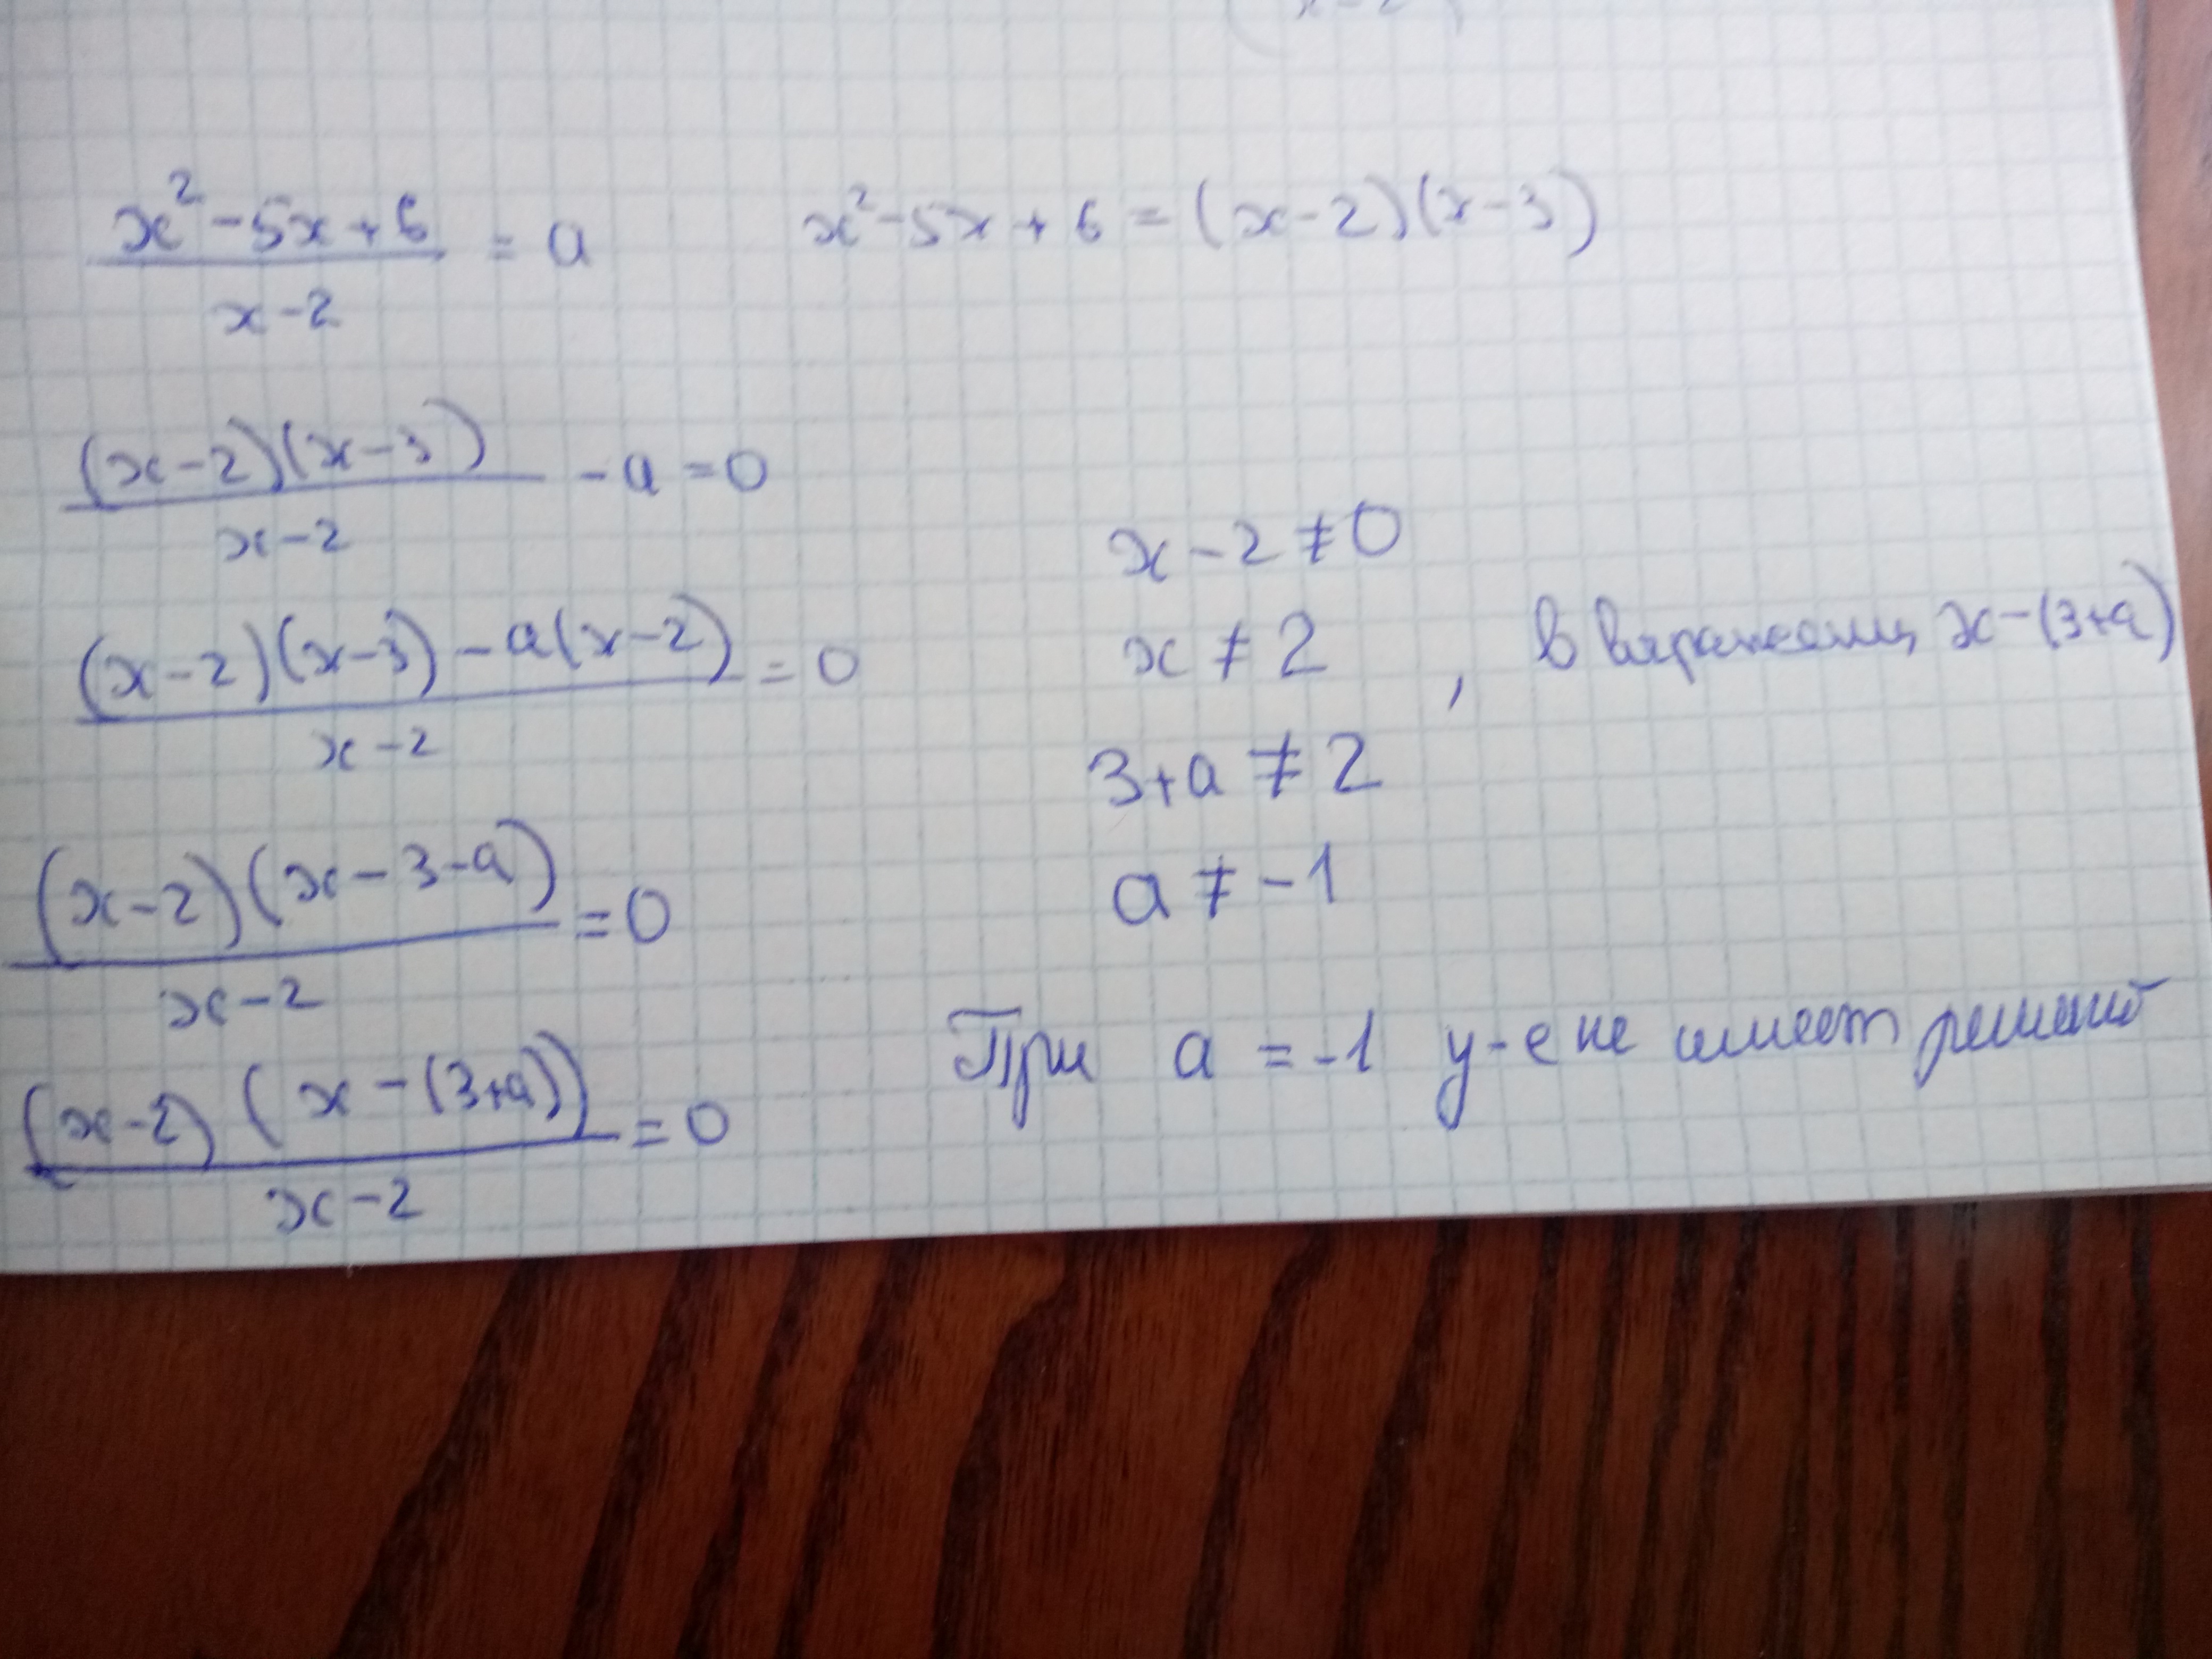 x² - 5x + 6 / x - 2 = a    x² - 5x + 6 = (x - 2)(x - 3)
(x - 2)(x - 3) / x - 2 - a = 0
x - 2 ≠ 0
(x - 2)(x - 3) - a(x - 2) / x - 2 = 0
x ≠ 2 , в выражении x - (3+a)
3 + a ≠ 2
(x - 2)(x - 3 - a) / x - 2 = 0
a ≠ -1
(x - 2)(x - (3+a)) / x - 2 = 0
При a = -1 у-е не имеет решений